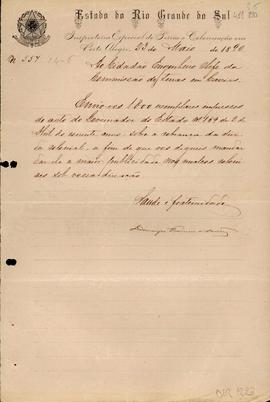 Estado do Rio Grande do Sul
Inspectoria Especial de Terras e Colonisação em
Porto Alegre, 23 de Maio de 1890
N. 557
Ao Cidadão Engenheiro Chefe da
Commissão de terras em Caxias
Envio-vos 1.000 exemplares impressos
do acto do Governador do Estado Nº de 2 de
Abril do corrente anno sobre a cobrança da divi-
da colonial, a fim de que vos digneis mandar
dar-lhe a maior publicidade nos nucleos coloni-
aes sob vossa direcção.
Saude e fraternidade